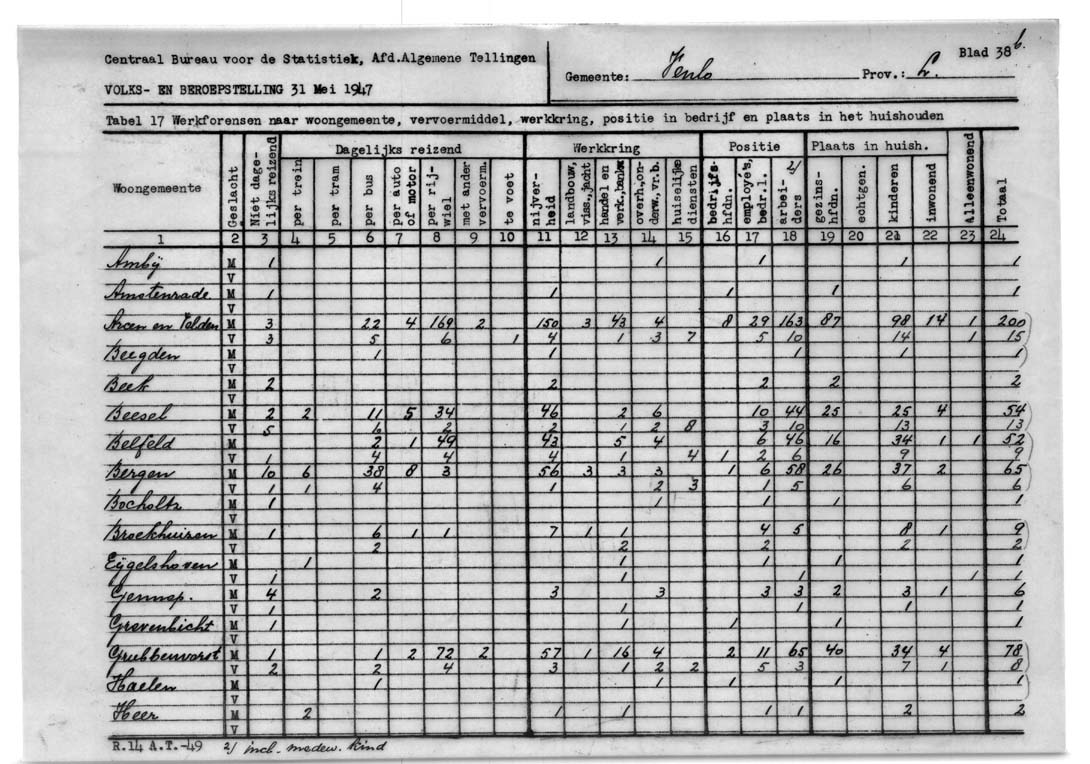 Centraal Bureau voor de Statistiek, Afd.Algemene Tellingen
VOLKS- EN BEROEPSTELLING 31 Mei 1947
Gemeente: Venlo Prov.: L. Blad 38 b.
Tabel 17 Werkforensen naar woongemeente, vervoermiddel, werkkring, positie in bedrijf en plaats in het huishouden
Woongemeente Geslacht Niet dage-lijks reizend Dagelijks reizend Werkkring Positie Plaats in huish. Alleenwonend Totaal
per trein per tram per bus per auto of motor per rij-wiel met ander vervoerm. te voet nijver-heid landbouw, viss.,jacht handel en verk., bankw overh.,on-derw.,vr.b. huiselijke diensten bedrijfs-hfdn. employé's, bedr.l. arbei-ders 2/ gezins-hfdn. echtgen. kinderen inwonend
1 2 3 4 5 6 7 8 9 10 11 12 13 14 15 16 17 18 19 20 21 22 23 24
Amby M 1 1 1 1 1
V
Amstenrade M 1 1 1 1 1
V
Arcen en Velden M 3 22 4 169 2 150 3 43 4 8 29 163 87 98 14 1 200
V 3 5 6 1 4 1 3 7 5 10 14 1 15
Beegden M 1 1 1 1 1
V
Beek M 2 2 2 2 2
V
Beesel M 2 2 11 5 34 46 2 6 10 44 25 25 4 54
V 5 6 2 2 1 2 8 3 10 13 13
Belfeld M 2 1 49 43 5 4 6 46 16 34 1 1 52
V 1 4 4 4 1 4 1 2 6 9 9
Bergen M 10 6 38 8 3 56 3 3 3 1 6 58 26 37 2 65
V 1 1 4 1 2 3 1 5 6 6
Bocholtz M 1 1 1 1 1
V
Broekhuizen M 1 6 1 1 7 1 1 4 5 8 1 9
V 2 2 2 2 2
Eygelshoven M 1 1 1 1 1
V 1 1 1 1 1
Gennep. M 4 2 3 3 3 3 2 3 1 6
V 1 1 1 1 1
Grevenbicht M 1 1 1 1 1
V
Grubbenvorst M 1 1 2 72 2 57 1 16 4 2 11 65 40 34 4 78
V 2 2 4 3 1 2 2 5 3 7 1 8
Haelen M 1 1 1 1 1
V
Heer M 2 1 1 1 1 2 2
V
R.14 A.T.-49 2/ incl. medew. kind